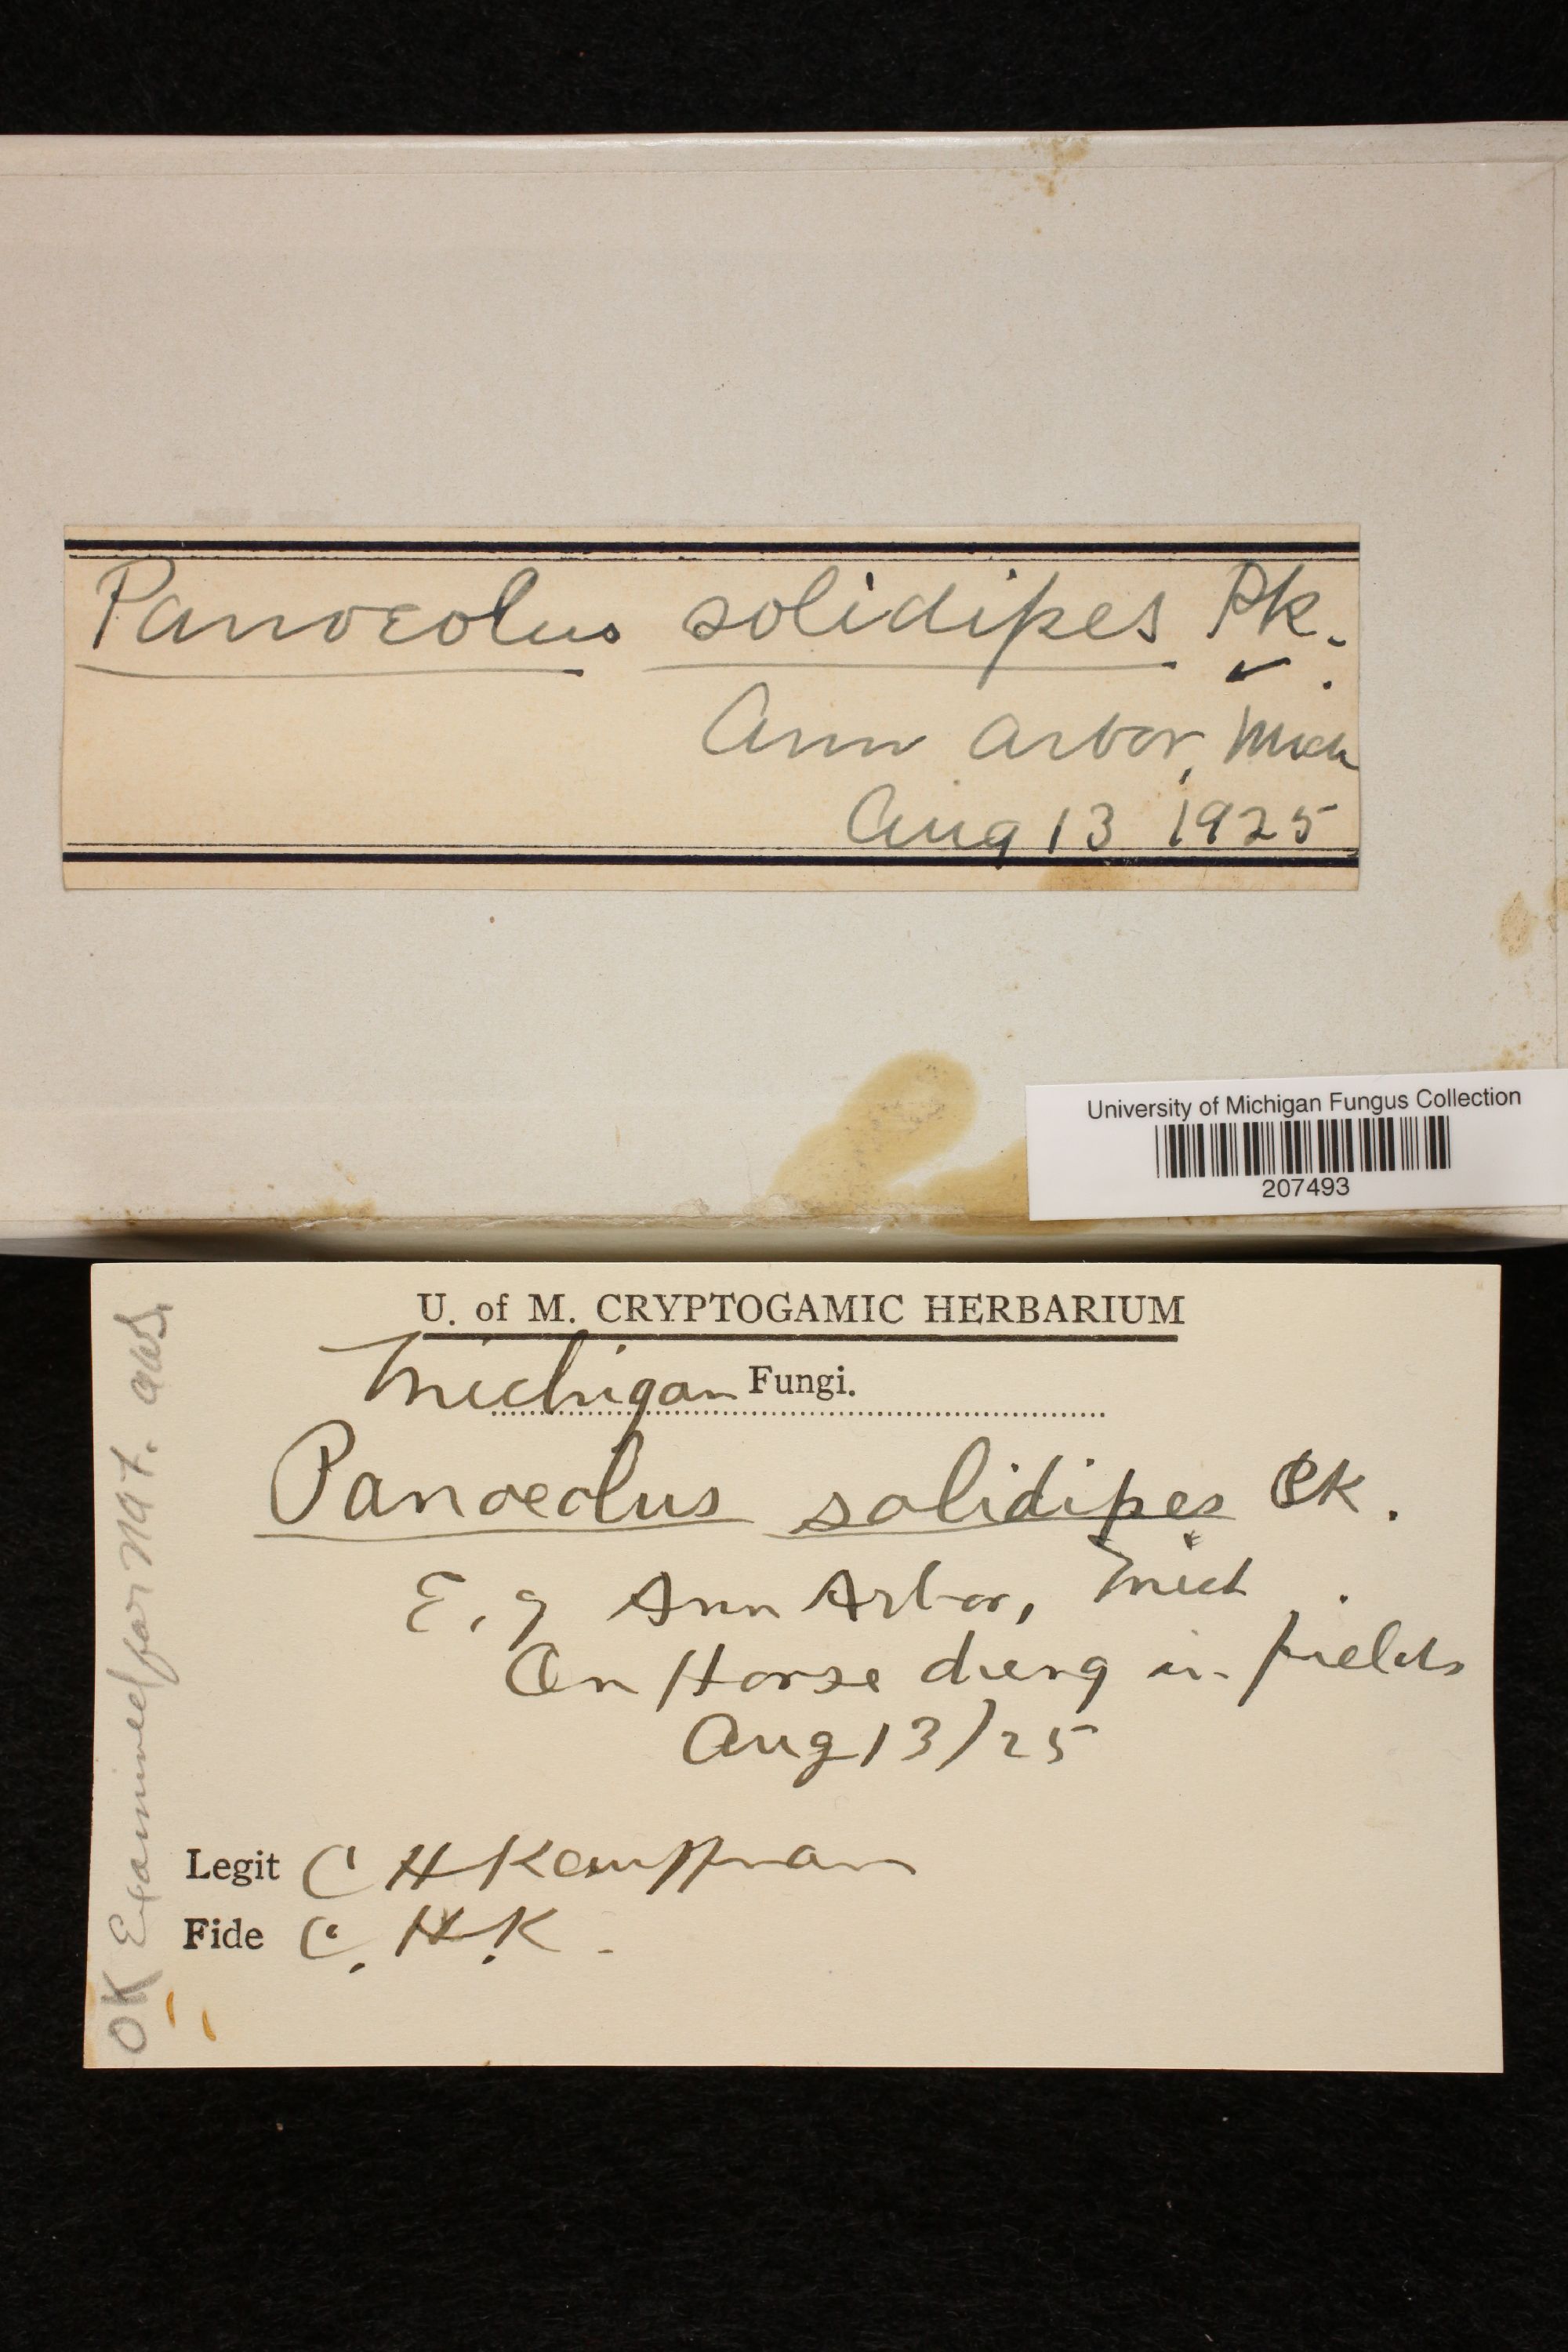 Panoeolus solidipes Pk.
Ann Arbor, Mich
Aug 13 1925
University of Michigan Fungus Collection
207493
U. of M. CRYPTOGAMIC HERBARIUM
Michigan Fungi.
Panoeolus solidipes Pk.
E. of Ann Arbor, Mich.
On Horse dung in fields
Aug 13/25
Legit C H Kauffman
Fide C. H. K.
OK Examined for Mat.